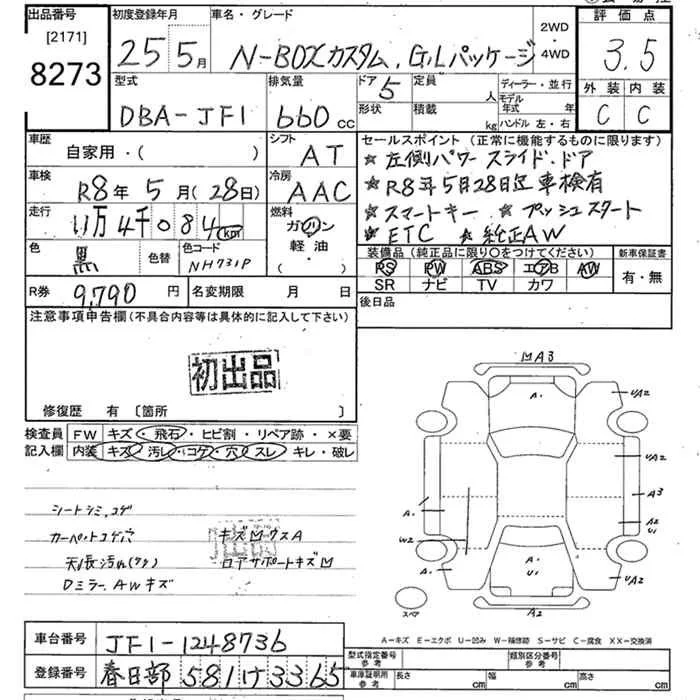 出品番号 初度登録年月 車名・グレード 2WD・4WD 評価点
[2171]
8273 25 5月 N-BOXカスタム, G,Lパッケージ 3.5
型式 排気量 ドア 5 定員 人 ディーラー・並行 外装 内装
DBA-JF1 660cc 形状 積載 kg モデル年式 年 ハンドル 左・右 C C
車歴 シフト セールスポイント (正常に機能するものに限ります)
自家用・( ) AT ☆左側パワースライド・ドア
車検 冷房 ☆R8年5月28日迄車検有
R8年 5月(28日) AAC ☆スマートキー ☆プッシュスタート
走行 燃料 ☆ETC ☆純正AW
11万4千084km ガソリン・軽油・( )
色 色替 色コード 装備品 (純正品に限り○をつけてください) 新車保証書
黒 NH731P PS PW ABS エアB AW 有・無
SR ナビ TV カワ
R券 9,790円 名変期限 月 日 後日品
注意事項申告欄 (不具合内容等は具体的に記入して下さい)
初出品
修復歴 有 〔箇所 〕
検査員記入欄 FW キズ・飛石・ヒビ割・リペア跡・×要
内装 キズ・汚レ・コゲ・穴・スレ・キレ・破レ
シートシミ,コゲ
カーペットコゲ穴 キズMウスA
天張汚れ
ロアサポートキズM
Dミラー,AWキズ
MA3
A.
UA2
UA2
A3
A2
U1
UA2
A.
W2
A.
A.
U1
A2
スペア
A-キズ E-エクボ U-凹み W-補修跡 S-サビ C-腐食 XX-交換済
車台番号 JF1-1248736 型式指定番号 参考 類別区分番号 参考
登録番号 春日部581け3365 車庫証明用 参考 長さ cm 幅 cm 高さ cm